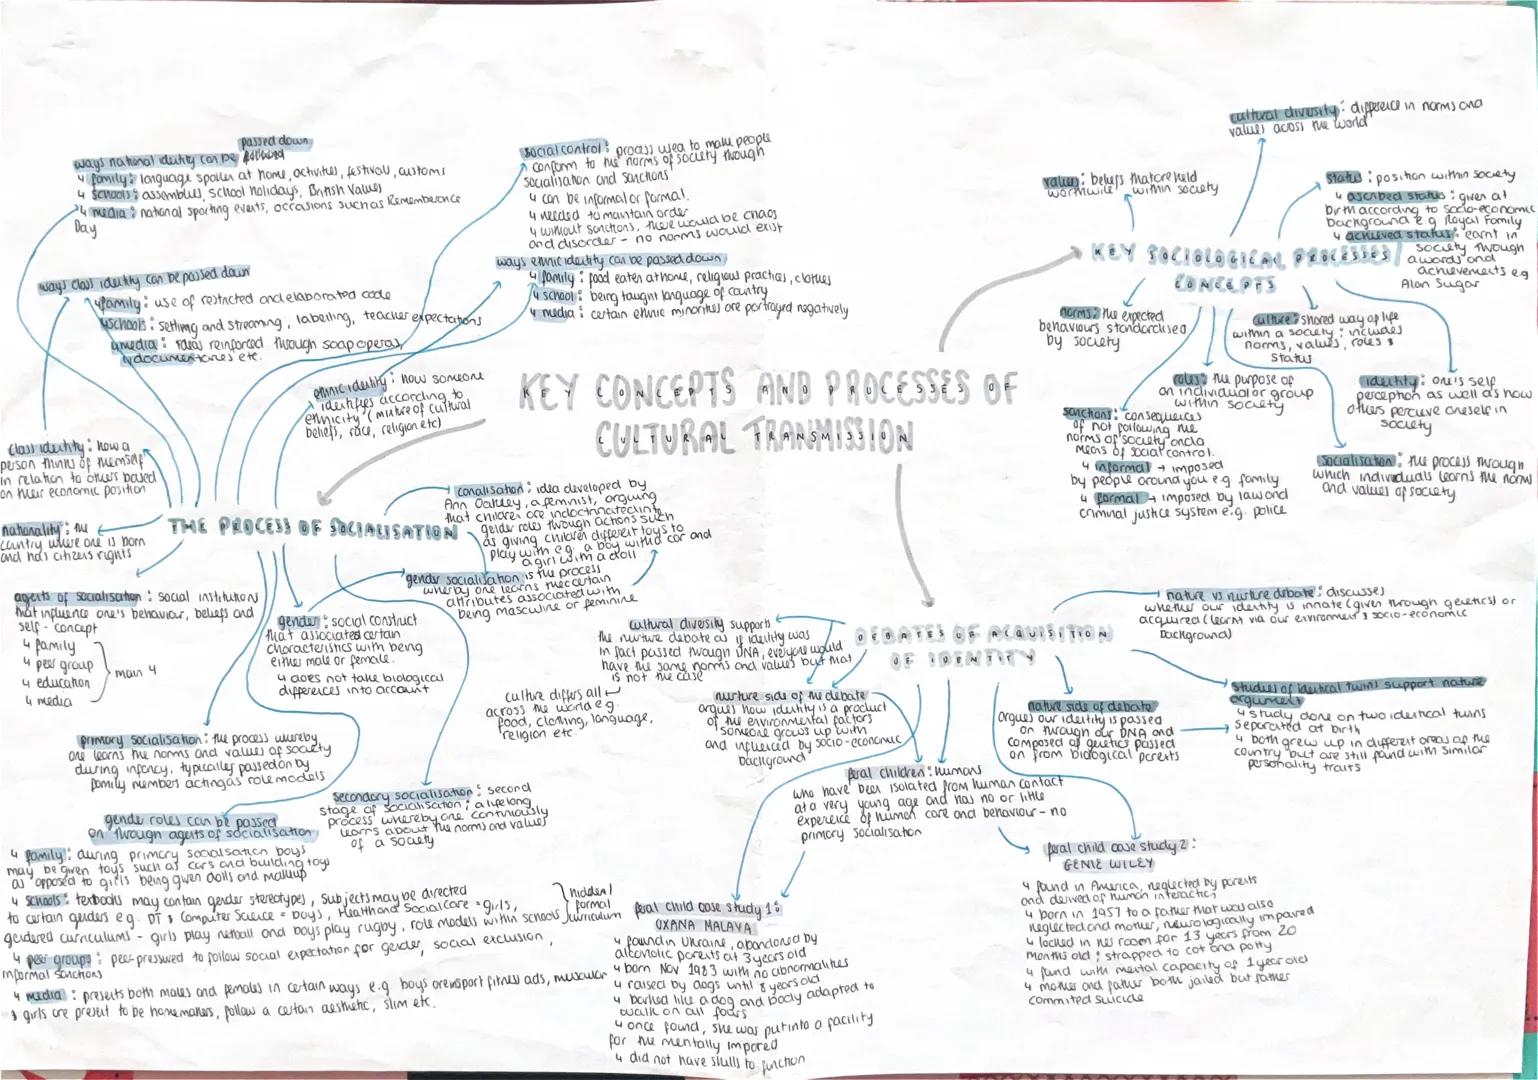 KEY CONCEPTS AND PROCESSES OF
CULTURAL TRANMISSION
passed down
ways national identity can be
family: language spoken at home, activites, festivals, customs
schools: assemblies, school holidays, British Values
media: national sporting events, occasions such as Rememberance
Day
ways class identity can be passed down
family: use of restricted and elaborated code
schools: setting and streaming, labelling, teacher expectations
media: ideas reinforced through soap operas,
documentaries etc.
social control: process used to make people
conform to the norms of society through
socialisation and sanctions
can be informal or formal.
needed to maintain order
without sanctions, there would be chaos
and disorder - no norms would exist
ways ethnic identity can be passed down
family: food eaten at home, religious practices, clothes
school: being taught language of country
media: certain ethnic minorities are portrayed negatively
ethnic identity: how someone
identifyes according to
ethnicity (mixture of cultural
beliefs, race, religion etc)
class identity: how a
person thinks of themself
in relation to others based
on their economic position
nationality: the
country where one is born
and has citizens rights
THE PROCESS OF SOCIALISATION
canalisation: idea developed by
Ann Oakley, a feminist, arguing
that children are indoctrinated into
gender roles through actions such
as giving children different toys to
play with e.g. a boy with a car and
a girl with a doll
gender socialisation is the process
whereby one learns the certain
attributes associated with
being masculine or feminine
agents of socialisation: social institutions
that influence one's behaviour, beliefs and
self-concept
family
peer group
education
media
main 4
gender: social construct
that associated certain
characteristics with being
either male or female.
does not take biological
differences into account
primary socialisation: the process whereby
one learns the norms and values of society
during infancy, typically passed on by
family members acting as role models
secondary socialisation: second
stage of socialisation; a lifelong
process whereby one continously
learns about the norms and values
of a society
gender roles can be passed
on through agents of socialisation
family: during primary socialisation boys
may be given toys such as cars and building toys
as opposed to girls being given dolls and makeup
schools: textbooks may contain gender stereotypes, subjects may be directed
to certain genders e.g. DT & Computer Science = boys, Health and Social Care = girls,
gendered curriculums - girls play netball and boys play rugby, role models within schools
hidden/
formal
curriculum
peer groups: peer-pressured to follow social expectation for gender, social exclusion,
informal sanctions
media: presents both males and females in certain ways e.g. boys are sport fitness ads, muscular
& girls are present to be homemakers, follow a certain aesthetic, slim etc.
KEY SOCIOLOGICAL PROCESSES/
CONCEPTS
cultural diversity: difference in norms and
values across the world
values: beliefs that are held
worthwile within society
status: position within society
ascribed status: given at
birth according to socio-economic
background e.g Royal Family
achieved status: earnt in
society through
awards and
achievements e.g
Alan Sugar
norms: the expected
behaviours standardised
by society
culture: shared way of life
within a society; includes
norms, values, roles &
status
roles: the purpose of
an individual or group
within society
identity: one's self
perception as well as how
others percieve oneself in
society
sanctions: consequences
of not following the
norms of society and a
means of social control.
informal → imposed
by people around you e.g family
formal → imposed by law and
criminal justice system e.g. police
socialisation: the process through
which individuals learns the norms
and values of society
DEBATES OF ACQUISITION
OF IDENTITY
nature vs nurture debate: discusses
whether our identity is innate (given through genetics) or
acquired (learnt via our environment & socio-economic
background)
cultural diversity supports
the nurture debate as if identity was
in fact passed through DNA, everyone would
have the same norms and values but that
is not the case
culture differs all
across the world e.g.
food, clothing, language,
religion etc.
nurture side of the debate
argues how identity is a product
of the environmental factors
someone grows up with
and influenced by socio-economic
background
nature side of debate
argues our identity is passed
on through our DNA and
composed of genetics passed
on from biological parents
studies of identical twins support nature
argument
study done on two identical twins
seperated at birth
both grew up in different areas of the
country but are still found with similar
personality traits
feral children: humans
who have been isolated from human contact
at a very young age and has no or little
experience of human care and behaviour - no
primary socialisation
feral child case study 1:
OXANA MALAYA
found in Ukraine, abandoned by
alcoholic parents at 3 years old
born Nov 1983 with no abnormalities
raised by dogs until 8 years old
barked like a dog and body adapted to
walk on all fours
once found, she was put into a facility
for the mentally impared
did not have skills to function
feral child case study 2:
GENIE WILEY
found in America, neglected by parents
and derived of human interaction
born in 1957 to a father that was also
neglected and mother, neurologically impaired
locked in her room for 13 years from 20
months old; strapped to cot and potty
found with mental capacity of 1 year old
mother and father both jailed but father
commited suicide